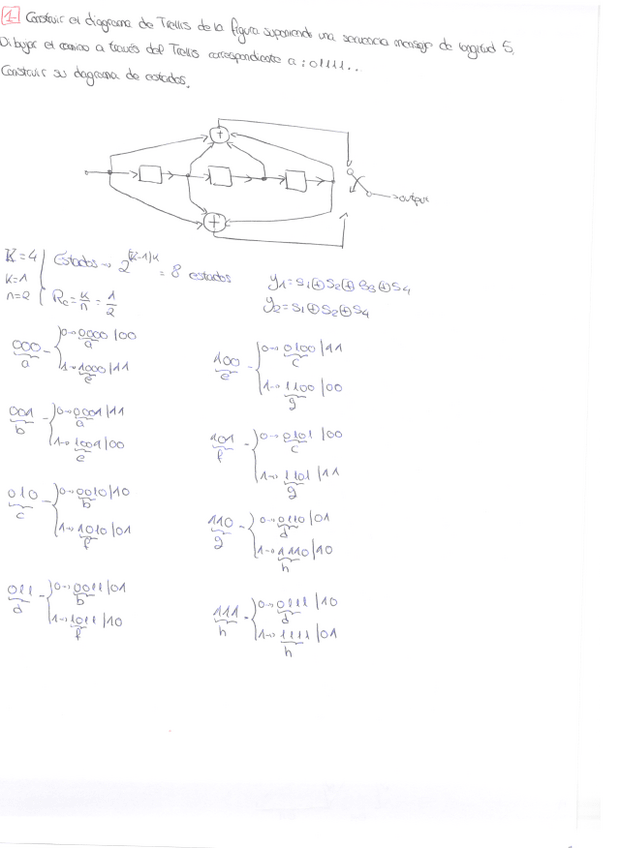 1- Construir el diagrama de Trellis de la figura suponiendo una secuencia mensaje de longitud 5.
Dibujar el camino a través del Trellis correspondiente a: 01111...
Construir su diagrama de estados.
+
output
+
K=4
k=1
n=2
Estados → 2^(K-1)k = 8 estados
Rc = k/n = 1/2
y1 = s1⊕s2⊕s3⊕s4
y2 = s1⊕s2⊕s4
000 a
0→0000 |00 a
1→1000 |11 e
001 b
0→0001 |11 a
1→1001 |00 e
010 c
0→0010 |10 b
1→1010 |01 f
011 d
0→0011 |01 b
1→1011 |10 f
100 e
0→0100 |11 c
1→1100 |00 g
101 f
0→0101 |00 c
1→1101 |11 g
110 g
0→0110 |01 d
1→1110 |10 h
111 h
0→0111 |10 d
1→1111 |01 h